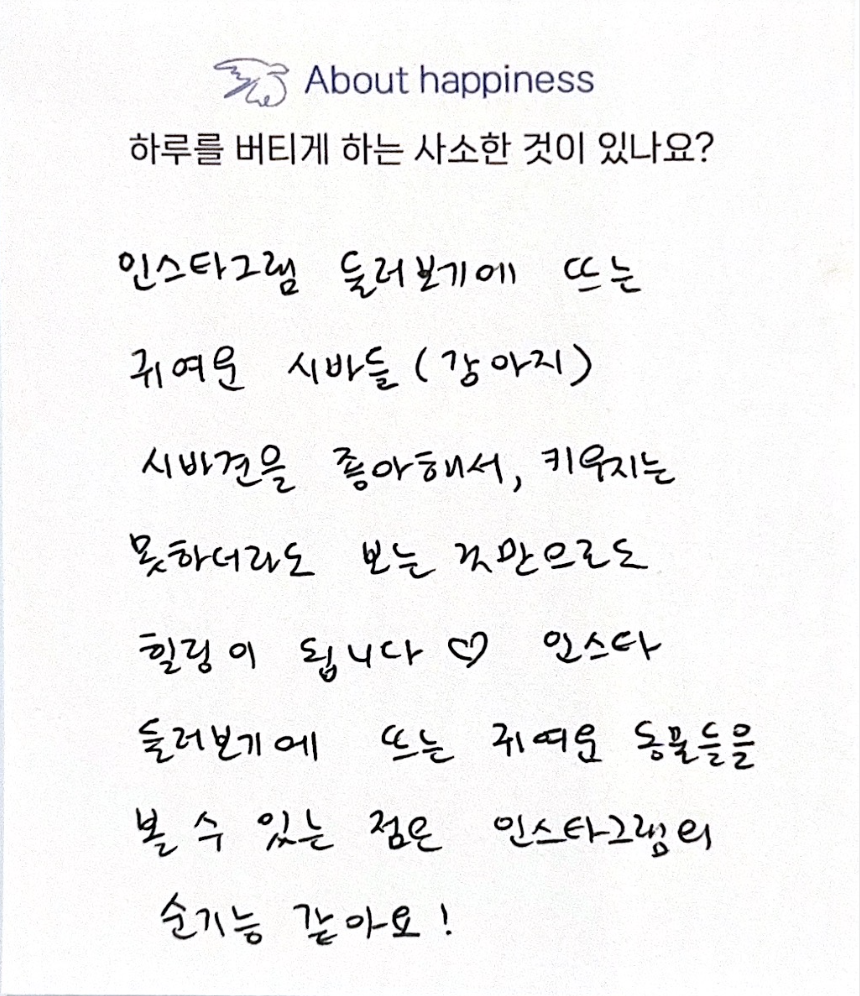 About happiness
하루를 버티게 하는 사소한 것이 있나요?
인스타그램 둘러보기에 뜨는
귀여운 시바들 (강아지)
시바견을 좋아해서, 키우지는
못하더라도 보는 것만으로도
힐링이 됩니다 ♡ 인스타
둘러보기에 뜨는 귀여운 동물들을
볼 수 있는 점은 인스타그램의
순기능 같아요!